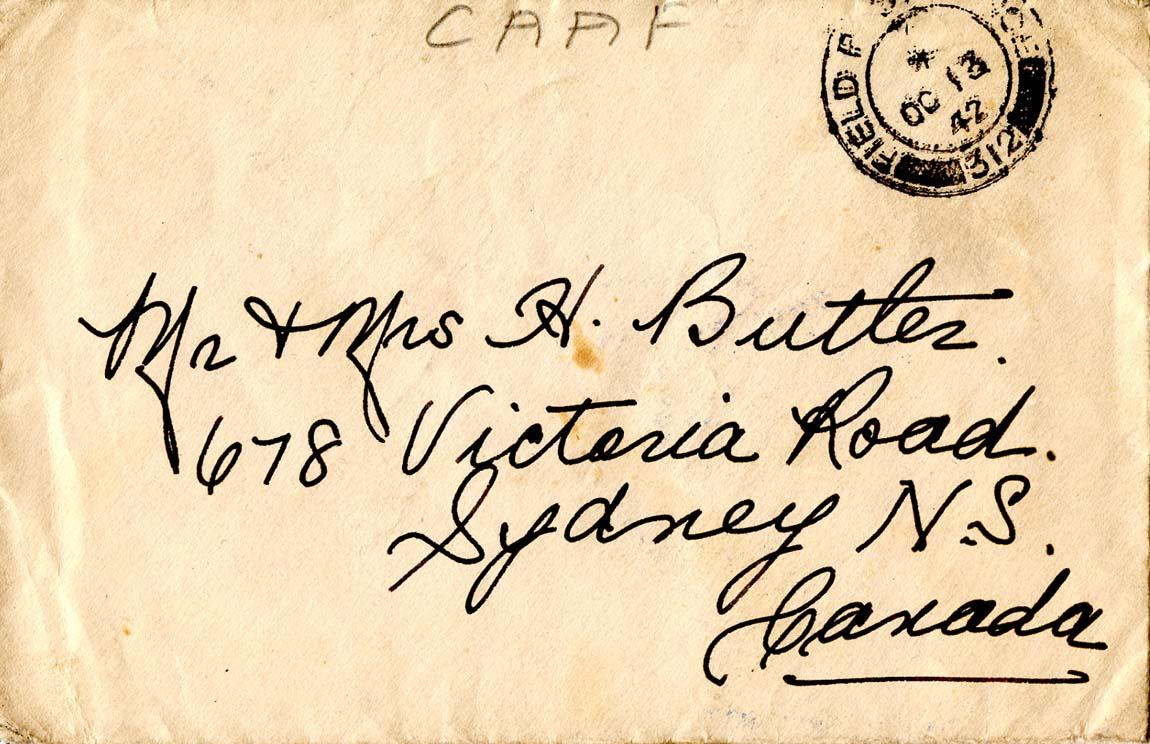 CAAF
FIELD P
312
*
OC 13
42
Mr & Mrs H. Butler.
678 Victoria Road.
Sydney N.S.
Canada